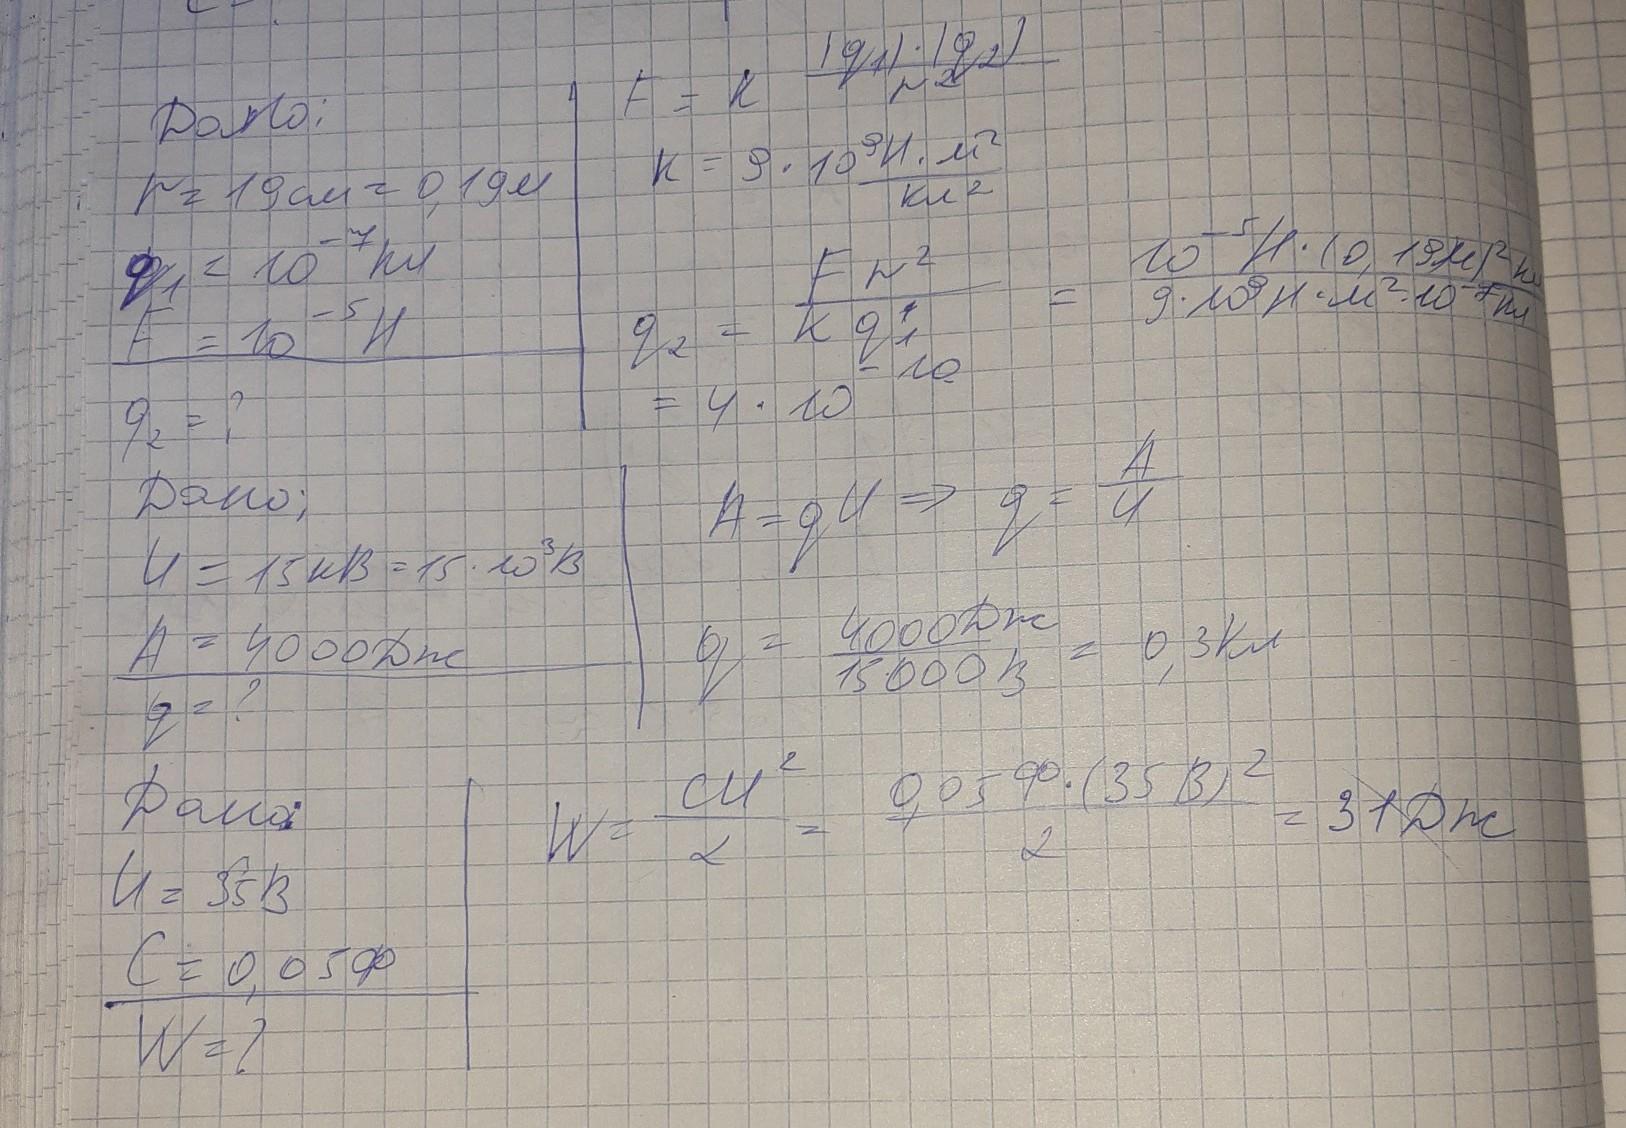 Дано:
r = 19см = 0,19м
q₁ = 10⁻⁷кл
F = 10⁻⁵Н
q₂ = ?
F = k |q₁|·|q₂| / r²
k = 9·10⁹ Н·м² / кл²
q₂ = F r² / k q₁ = 10⁻⁵Н·(0,19м)² кл / 9·10⁹Н·м²·10⁻⁷кл
= 4·10⁻¹⁰
Дано;
U = 15кВ = 15·10³В
A = 4000Дж
q = ?
A = qU => q = A / U
q = 4000Дж / 15000В = 0,3Кл
Дано:
U = 35В
C = 0,05Ф
W = ?
W = CU² / 2 = 0,05Ф·(35В)² / 2 = 31Дж